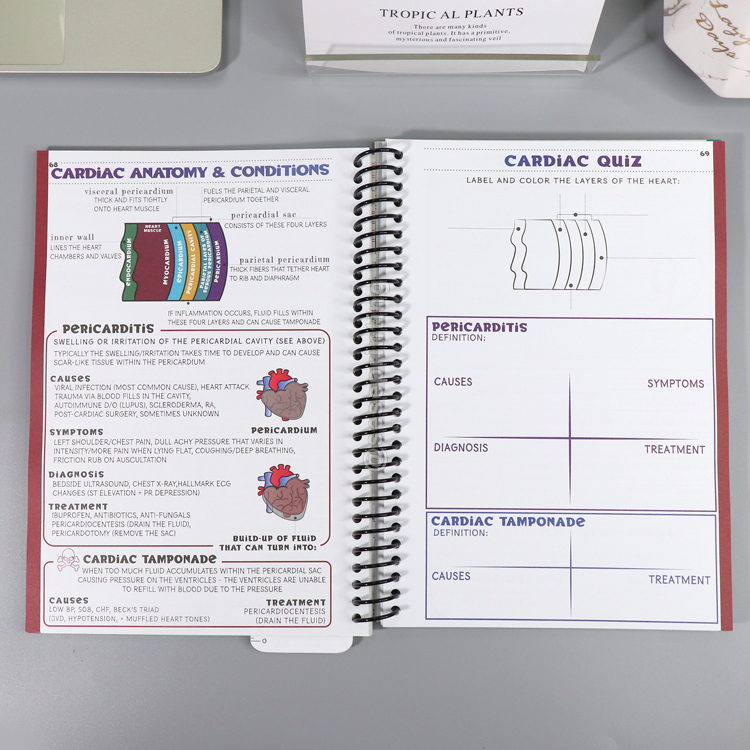 TROPIC AL PLANTS
There are many kinds
of tropical plants. It has a primitive,
mysterious and fascinating veil
Lazy
Days
68
CARDIAC ANATOMY & CONDITIONS
visceral pericardium
THICK AND FITS TIGHTLY
ONTO HEART MUSCLE
FUELS THE PARIETAL AND VISCERAL
PERICARDIUM TOGETHER
pericardial sac
CONSISTS OF THESE FOUR LAYERS
inner wall
LINES THE HEART
CHAMBERS AND VALVES
parietal pericardium
THICK FIBERS THAT TETHER HEART
TO RIB AND DIAPHRAGM
ENDOCARDIUM
HEART
MUSCLE
MYOCARDIUM
EPICARDIUM
PERICARDIAL CAVITY
PARIETAL LAYER OF
SEROUS PERICARDIUM
PERICARDIUM
IF INFLAMMATION OCCURS, FLUID FILLS WITHIN
THESE FOUR LAYERS AND CAN CAUSE TAMPONADE
PERICARDITIS
SWELLING OR IRRITATION OF THE PERICARDIAL CAVITY (SEE ABOVE)
TYPICALLY THE SWELLING/IRRITATION TAKES TIME TO DEVELOP AND CAN CAUSE
SCAR-LIKE TISSUE WITHIN THE PERICARDIUM
CAUSES
VIRAL INFECTION (MOST COMMON CAUSE), HEART ATTACK
TRAUMA VIA BLOOD FILLS IN THE CAVITY,
AUTOIMMUNE D/O (LUPUS), SCLERODERMA, RA,
POST-CARDIAC SURGERY, SOMETIMES UNKNOWN
SYMPTOMS
PERICARDIUM
LEFT SHOULDER/CHEST PAIN, DULL ACHY PRESSURE THAT VARIES IN
INTENSITY/MORE PAIN WHEN LYING FLAT, COUGHING/DEEP BREATHING,
FRICTION RUB ON AUSCULTATION
DIAGNOSIS
BEDSIDE ULTRASOUND, CHEST X-RAY,HALLMARK ECG
CHANGES (ST ELEVATION + PR DEPRESSION)
TREATMENT
IBUPROFEN, ANTIBIOTICS, ANTI-FUNGALS
PERICARDIOCENTESIS (DRAIN THE FLUID),
PERICARDOTOMY (REMOVE THE SAC)
BUILD-UP OF FLUID
THAT CAN TURN INTO:
CARDIAC TAMPONADE
WHEN TOO MUCH FLUID ACCUMULATES WITHIN THE PERICARDIAL SAC
CAUSING PRESSURE ON THE VENTRICLES - THE VENTRICLES ARE UNABLE
TO REFILL WITH BLOOD DUE TO THE PRESSURE.
CAUSES
LOW BP, SOB, CHF, BECK'S TRIAD
(JVD, HYPOTENSION, + MUFFLED HEART TONES)
TREATMENT
PERICARDIOCENTESIS
(DRAIN THE FLUID)
0
69
CARDIAC QUIZ
LABEL AND COLOR THE LAYERS OF THE HEART:
PERICARDITIS
DEFINITION:
CAUSES
SYMPTOMS
DIAGNOSIS
TREATMENT
CARDIAC TAMPONADE
DEFINITION:
CAUSES
TREATMENT